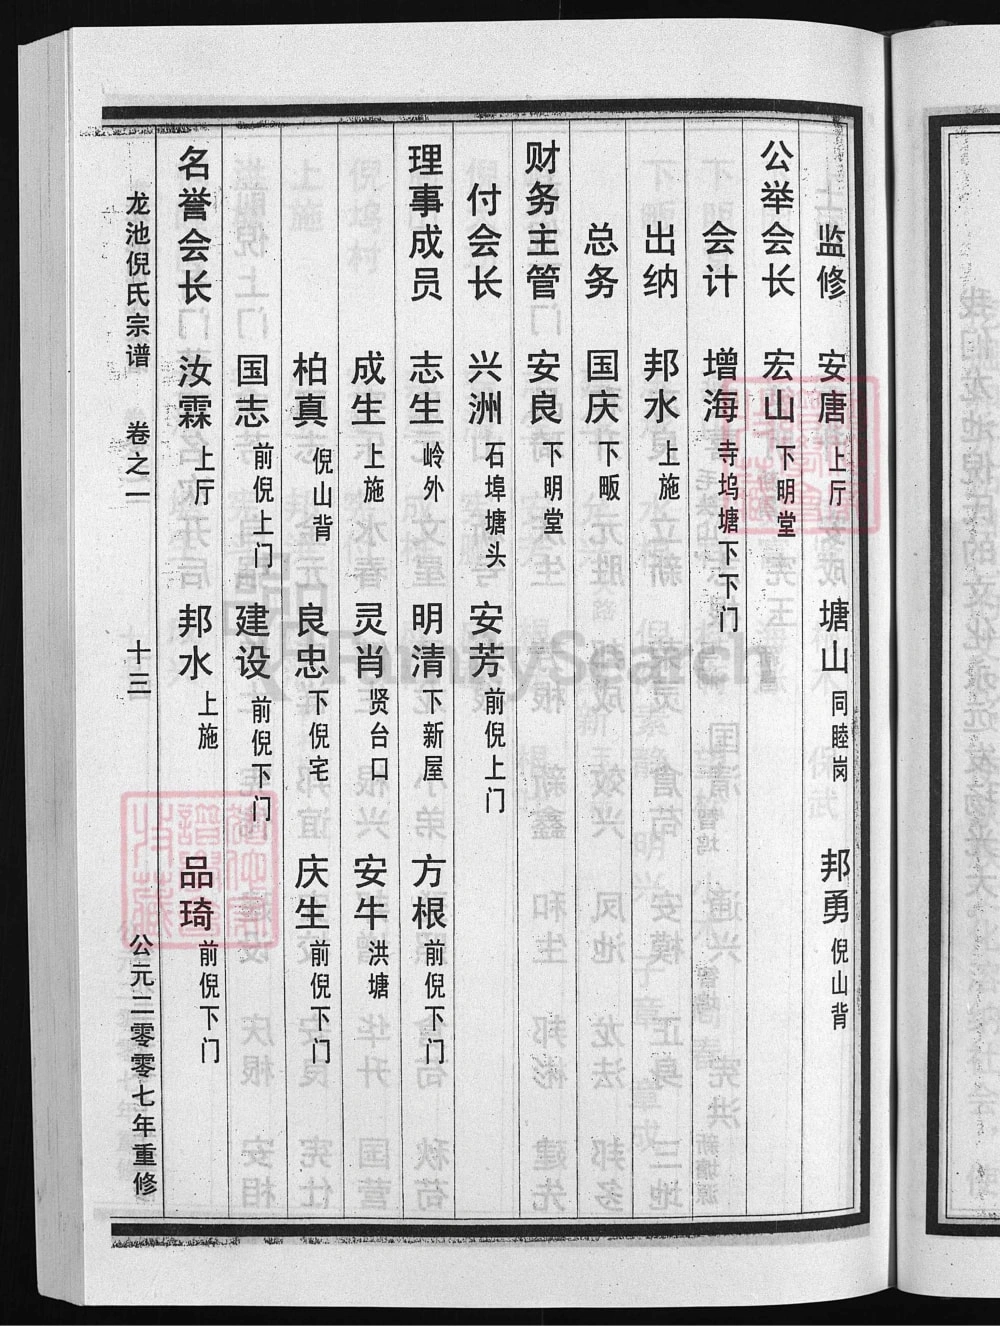 监修 安唐 上厅 塘山 同睦岗 邦勇 倪山背
公举会长 宏山 下明堂
会计 增海 寺坞塘下下门
出纳 邦水 上施
总务 国庆 下畈
财务主管 安良 下明堂
付会长 兴洲 石埠塘头 安芳 前倪上门
理事成员 志生 岭外 明清 下新屋 方根 前倪下门
成生 上施 灵肖 贤台口 安牛 洪塘
柏真 倪山背 良忠 下倪宅 庆生 前倪下门
国志 前倪上门 建设 前倪下门
名誉会长 汝霖 上厅 邦水 上施 品琦 前倪下门
龙池倪氏宗谱 卷之一 十三 公元二零零七年重修
FamilySearch